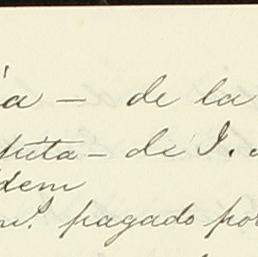 a — de la
puta — de I.
dem
m.º pagado por